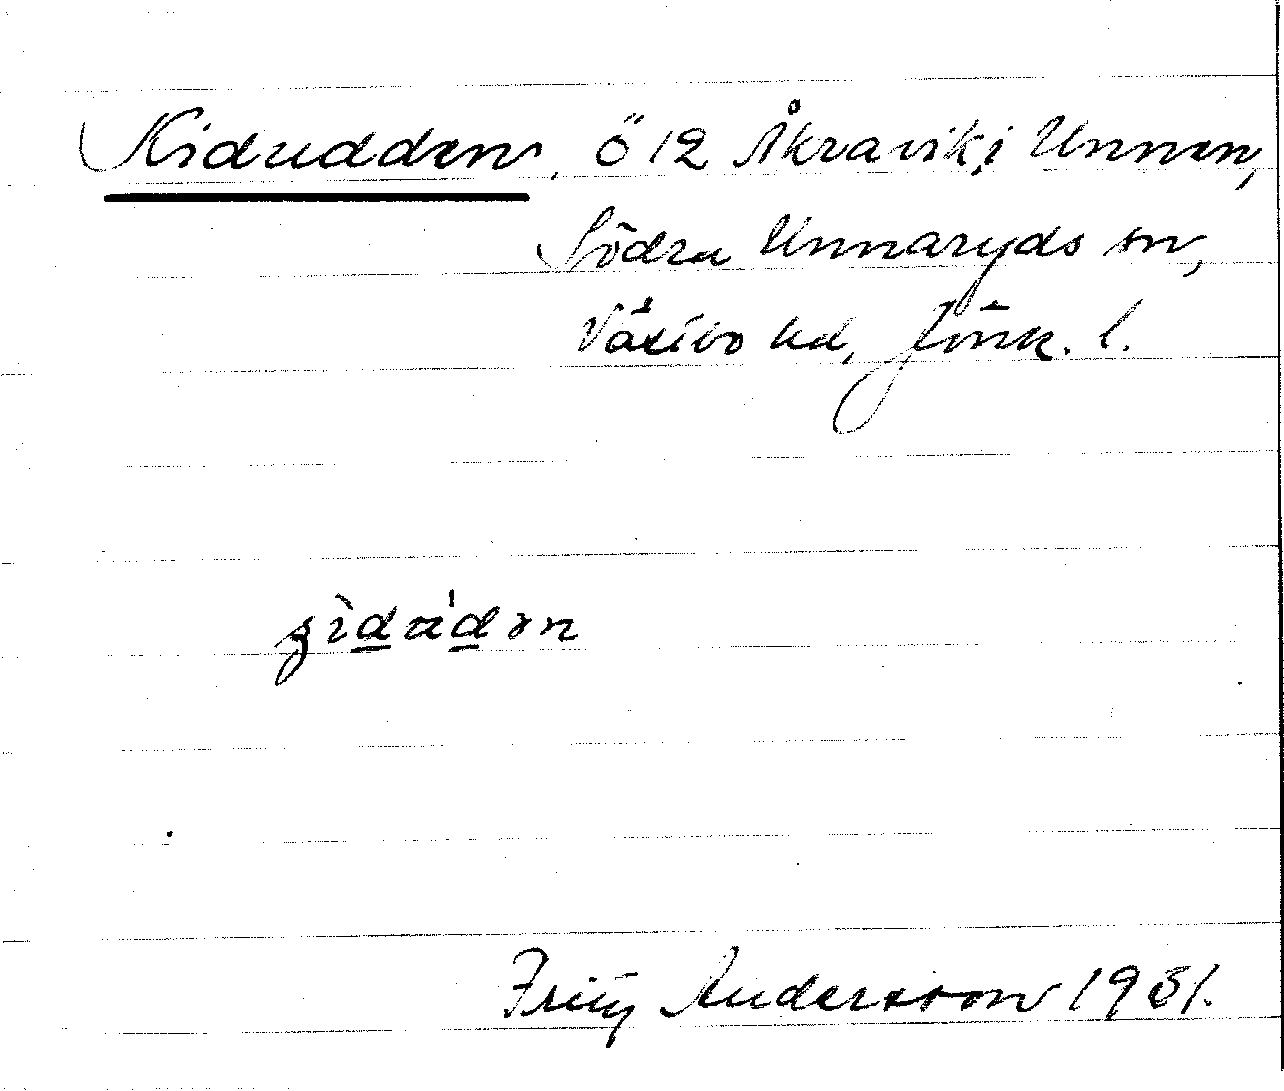 Kidudden, ö 12 Åkravik, i Unnen,
Södra Unnaryds sn,
Västbo hd, Jönk. l.
Fritz Andersson 1931.